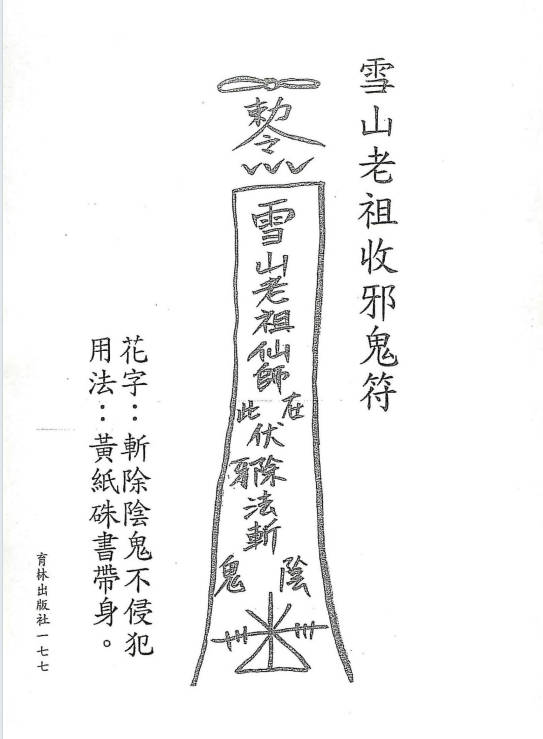 雪山老祖收邪鬼符
勅令
雪山老祖仙師在此伏除邪法斬陰鬼
花字：斬除陰鬼不侵犯
用法：黃紙硃書帶身。
育林出版社一七七